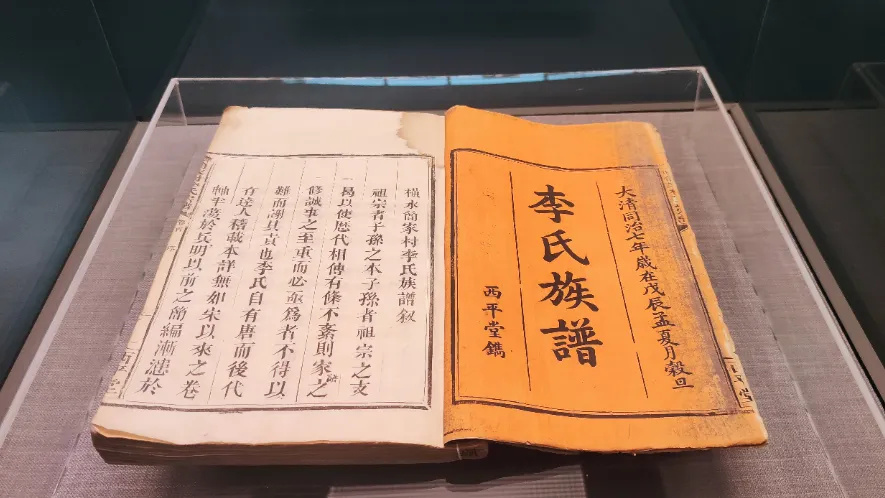 大清同治七年歲在戊辰孟夏月穀旦
李氏族譜
西平堂鐫
橫水簡家村李氏族譜敘
祖宗者子孫之本子孫者祖宗之支
一
曷以使歷代相傳有條不紊則家之
修誠事之至重而必亟為者不得以
難而謝其責也李氏自有唐而後代
有達人稽載本詳無如宋以來之卷
軸半蕩於兵明以前之簡編漸漶於